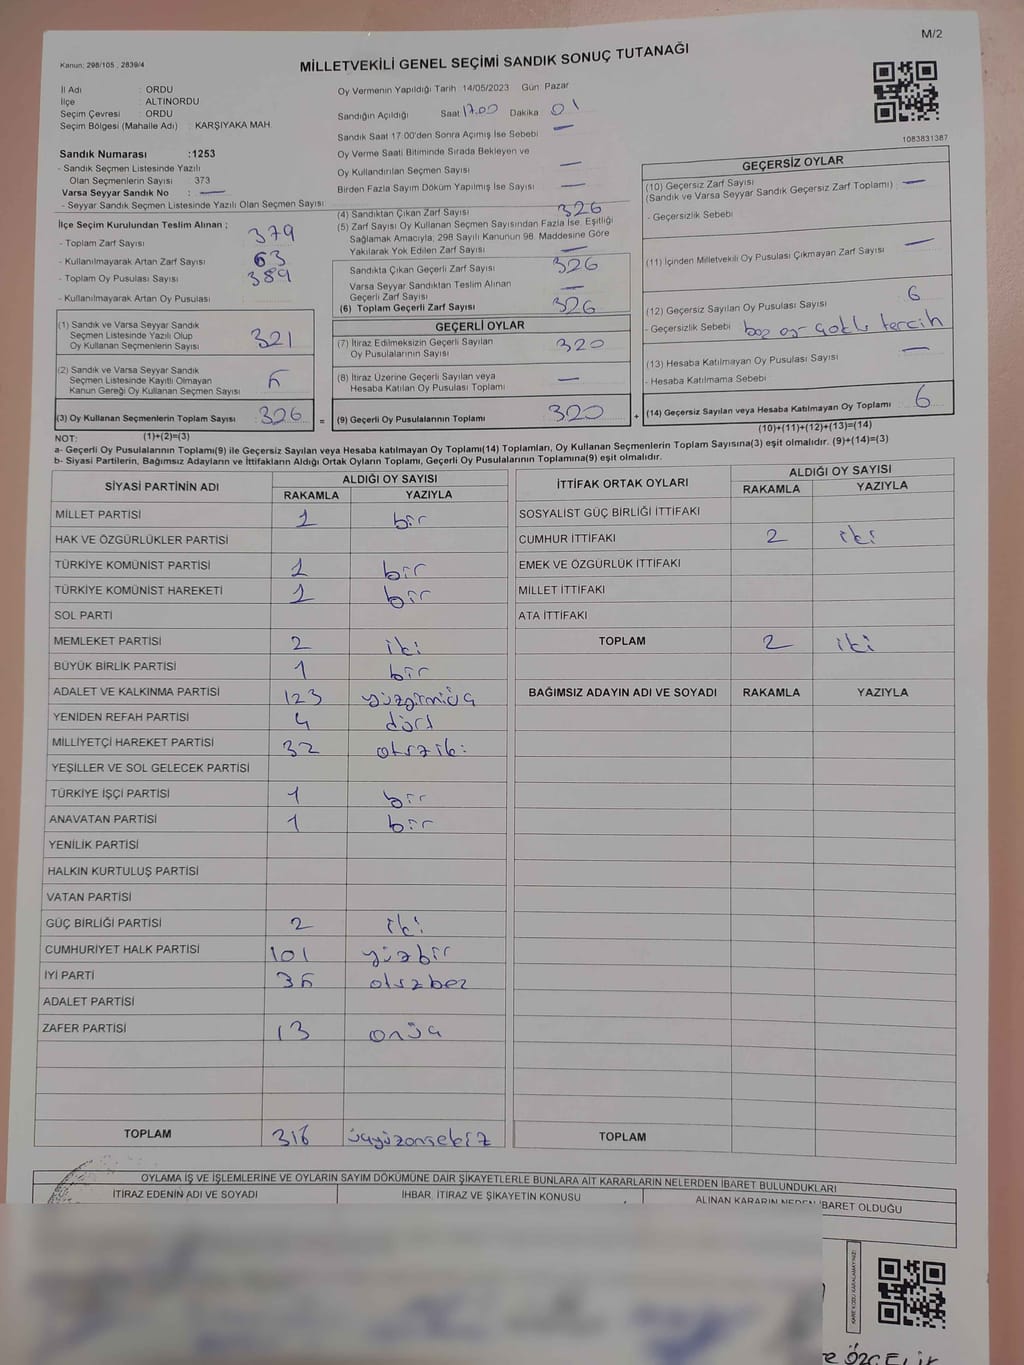 M/2
Kanun; 298/105 , 2839/4
MİLLETVEKİLİ GENEL SEÇİMİ SANDIK SONUÇ TUTANAĞI
İl Adı : ORDU
İlçe : ALTINORDU
Seçim Çevresi : ORDU
Seçim Bölgesi (Mahalle Adı) : KARŞIYAKA MAH.
Sandık Numarası :1253
- Sandık Seçmen Listesinde Yazılı
Olan Seçmenlerin Sayısı : 373
Varsa Seyyar Sandık No : —
- Seyyar Sandık Seçmen Listesinde Yazılı Olan Seçmen Sayısı :
Oy Vermenin Yapıldığı Tarih 14/05/2023 Gün Pazar
Sandığın Açıldığı Saat 17.00 Dakika 01
Sandık Saat 17.00'den Sonra Açımış İse Sebebi —
Oy Verme Saati Bitiminde Sırada Bekleyen ve
Oy Kullandırılan Seçmen Sayısı —
Birden Fazla Sayım Döküm Yapılmış İse Sayısı —
1083831387
İlçe Seçim Kurulundan Teslim Alınan ;
- Toplam Zarf Sayısı 379
- Kullanılmayarak Artan Zarf Sayısı 63
- Toplam Oy Pusulası Sayısı 389
- Kullanılmayarak Artan Oy Pusulası
(1) Sandık ve Varsa Seyyar Sandık
Seçmen Listesinde Yazılı Olup
Oy Kullanan Seçmenlerin Sayısı 321
(2) Sandık ve Varsa Seyyar Sandık
Seçmen Listesinde Kayıtlı Olmayan
Kanun Gereği Oy Kullanan Seçmen Sayısı 5
(3) Oy Kullanan Seçmenlerin Toplam Sayısı 326 =
(4) Sandıktan Çıkan Zarf Sayısı 326
(5) Zarf Sayısı Oy Kullanan Seçmen Sayısından Fazla İse, Eşitliği
Sağlamak Amacıyla, 298 Sayılı Kanunun 98. Maddesine Göre
Yakılarak Yok Edilen Zarf Sayısı —
Sandıkta Çıkan Geçerli Zarf Sayısı 326
Varsa Seyyar Sandıktan Teslim Alınan
Geçerli Zarf Sayısı —
(6) Toplam Geçerli Zarf Sayısı 326
GEÇERLİ OYLAR
(7) İtiraz Edilmeksizin Geçerli Sayılan
Oy Pusulalarının Sayısı 320
(8) İtiraz Üzerine Geçerli Sayılan veya
Hesaba Katılan Oy Pusulası Toplamı —
(9) Geçerli Oy Pusulalarının Toplamı 320 +
GEÇERSİZ OYLAR
(10) Geçersiz Zarf Sayısı
(Sandık ve Varsa Seyyar Sandık Geçersiz Zarf Toplamı) —
- Geçersizlik Sebebi
(11) İçinden Milletvekili Oy Pusulası Çıkmayan Zarf Sayısı —
(12) Geçersiz Sayılan Oy Pusulası Sayısı 6
- Geçersizlik Sebebi boş oy - çoklu tercih
(13) Hesaba Katılmayan Oy Pusulası Sayısı —
- Hesaba Katılmama Sebebi
(14) Geçersiz Sayılan veya Hesaba Katılmayan Oy Toplamı 6
(1)+(2)=(3)
(10)+(11)+(12)+(13)=(14)
NOT:
a- Geçerli Oy Pusulalarının Toplamı(9) ile Geçersiz Sayılan veya Hesaba katılmayan Oy Toplamı(14) Toplamları, Oy Kullanan Seçmenlerin Toplam Sayısına(3) eşit olmalıdır. (9)+(14)=(3)
b- Siyasi Partilerin, Bağımsız Adayların ve İttifakların Aldığı Ortak Oyların Toplamı, Geçerli Oy Pusulalarının Toplamına(9) eşit olmalıdır.
SİYASİ PARTİNİN ADI ALDIĞI OY SAYISI
RAKAMLA YAZIYLA
MİLLET PARTİSİ 1 bir
HAK VE ÖZGÜRLÜKLER PARTİSİ
TÜRKİYE KOMÜNİST PARTİSİ 1 bir
TÜRKİYE KOMÜNİST HAREKETİ 1 bir
SOL PARTİ
MEMLEKET PARTİSİ 2 iki
BÜYÜK BİRLİK PARTİSİ 1 bir
ADALET VE KALKINMA PARTİSİ 123 yüzyirmiüç
YENİDEN REFAH PARTİSİ 4 dört
MİLLİYETÇİ HAREKET PARTİSİ 32 otuziki
YEŞİLLER VE SOL GELECEK PARTİSİ
TÜRKİYE İŞÇİ PARTİSİ 1 bir
ANAVATAN PARTİSİ 1 bir
YENİLİK PARTİSİ
HALKIN KURTULUŞ PARTİSİ
VATAN PARTİSİ
GÜÇ BİRLİĞİ PARTİSİ 2 iki
CUMHURİYET HALK PARTİSİ 101 yüzbir
İYİ PARTİ 35 otuzbeş
ADALET PARTİSİ
ZAFER PARTİSİ 13 onüç
TOPLAM 318 üçyüzonsekiz
İTTİFAK ORTAK OYLARI ALDIĞI OY SAYISI
RAKAMLA YAZIYLA
SOSYALİST GÜÇ BİRLİĞİ İTTİFAKI
CUMHUR İTTİFAKI 2 iki
EMEK VE ÖZGÜRLÜK İTTİFAKI
MİLLET İTTİFAKI
ATA İTTİFAKI
TOPLAM 2 iki
BAĞIMSIZ ADAYIN ADI VE SOYADI RAKAMLA YAZIYLA
TOPLAM
OYLAMA İŞ VE İŞLEMLERİNE VE OYLARIN SAYIM DÖKÜMÜNE DAİR ŞİKAYETLERLE BUNLARA AİT KARARLARIN NELERDEN İBARET BULUNDUKLARI
İTİRAZ EDENİN ADI VE SOYADI İHBAR, İTİRAZ VE ŞİKAYETİN KONUSU ALINAN KARARIN NEDEN İBARET OLDUĞU
KARE KODU KARALAMAYINIZ!
ÖZÇELİK